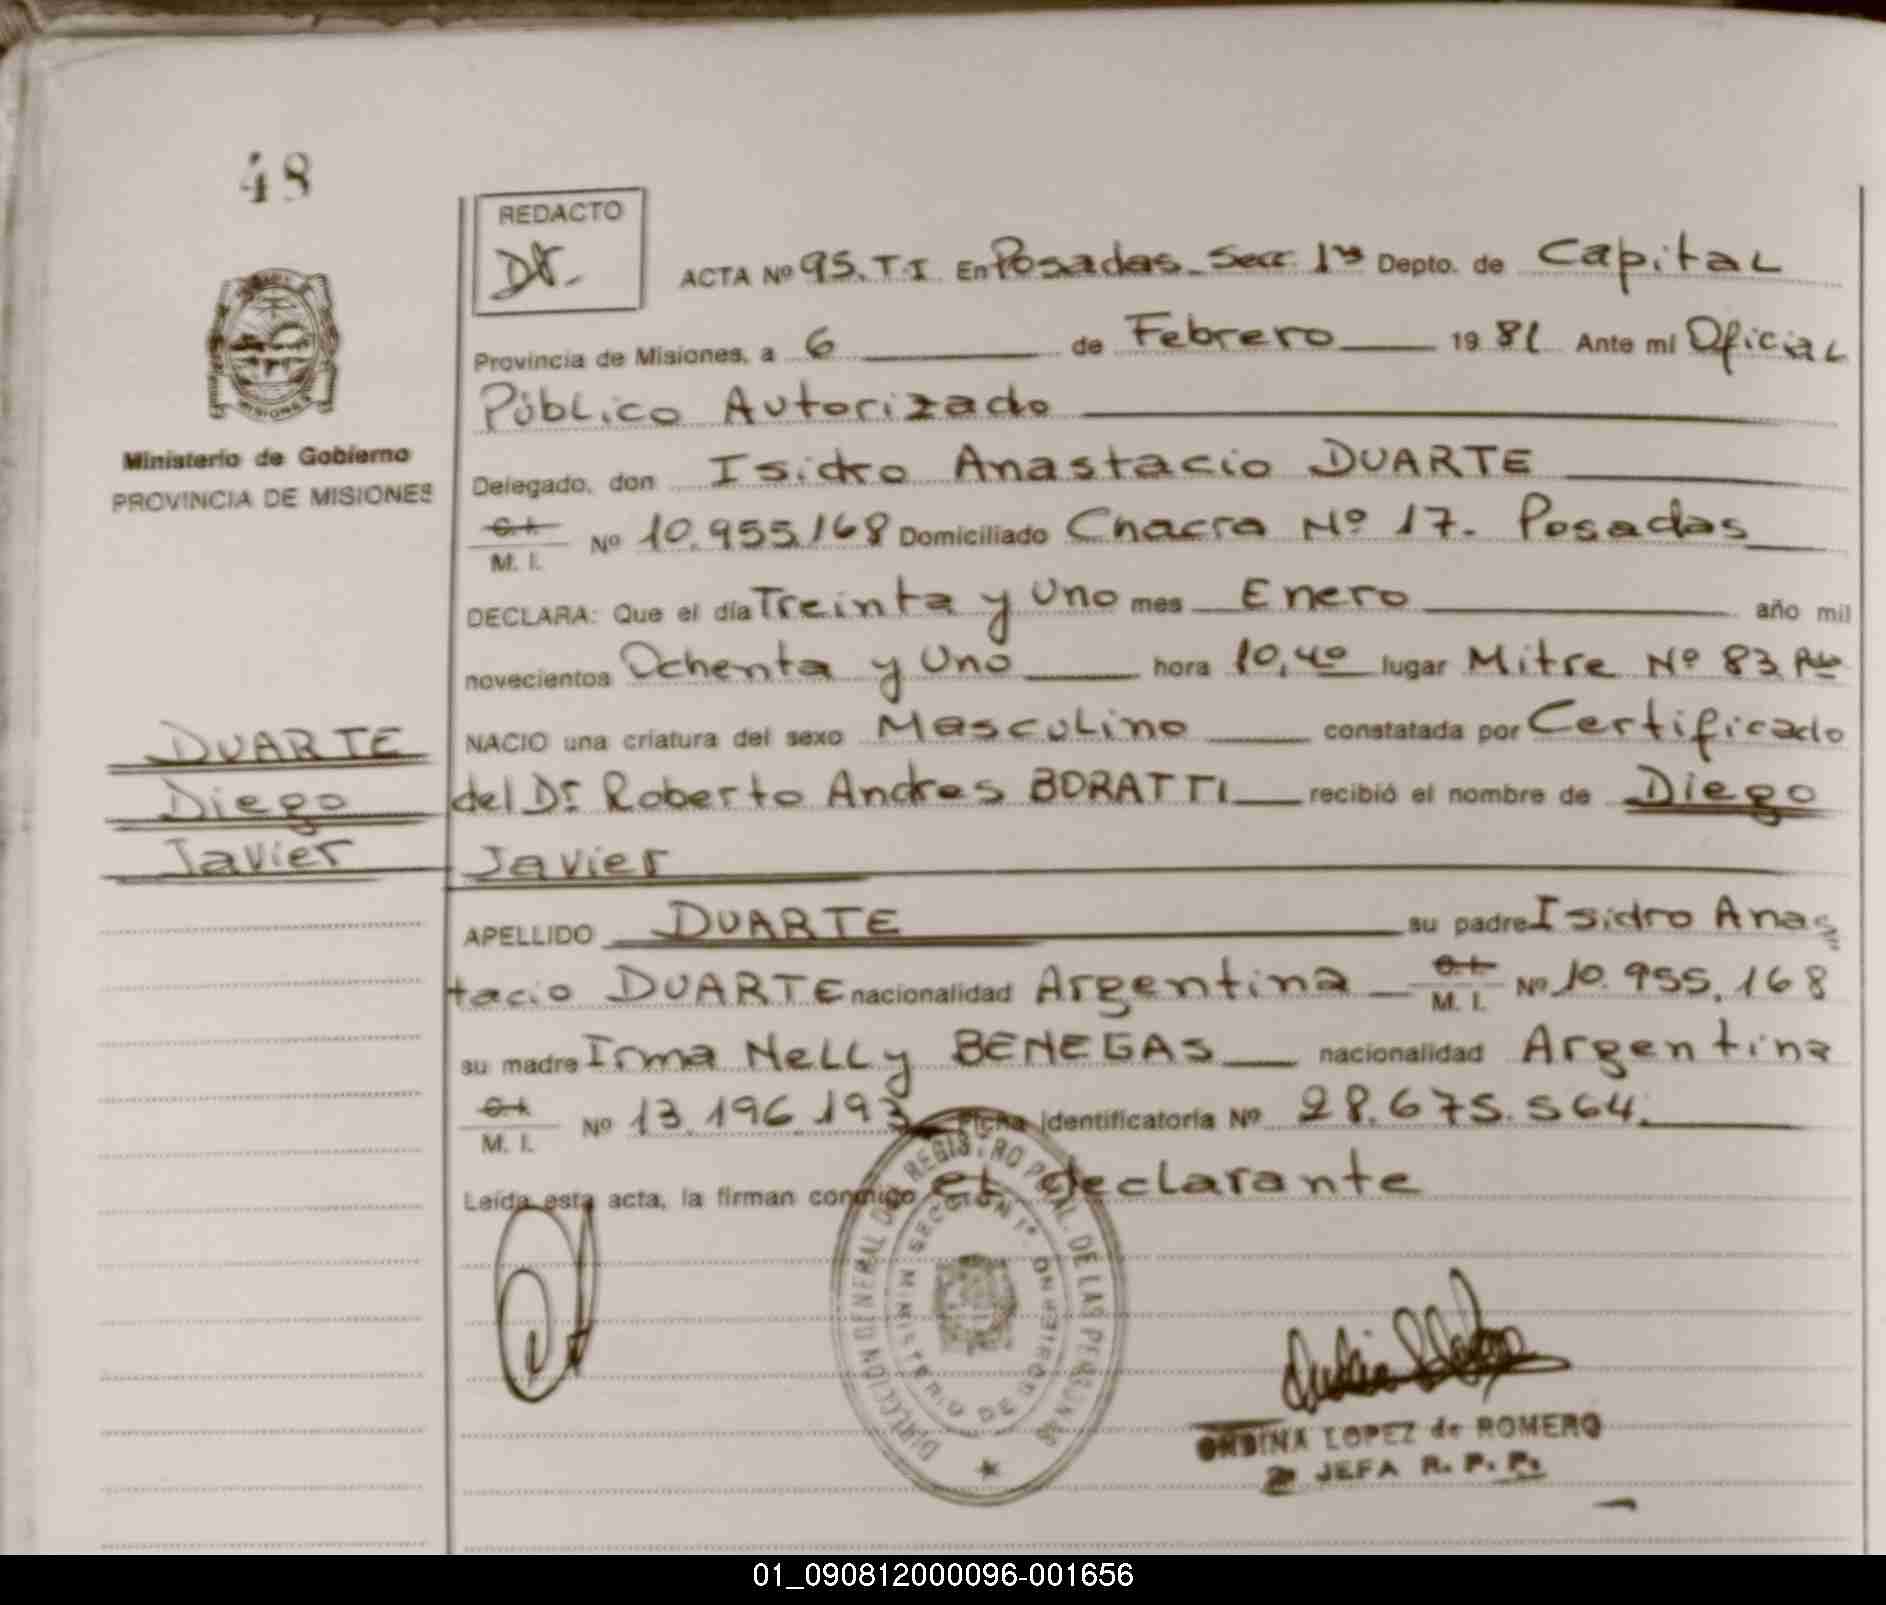 48
REDACTO
ACTA Nº 95. T.I En Posadas Secc 1ra Depto. de Capital
Provincia de Misiones, a 6 de Febrero 1981 Ante mi Oficial
Público Autorizado
Ministerio de Gobierno
PROVINCIA DE MISIONES
Delegado, don Isidro Anastacio DUARTE
C.I. M. I. Nº 10.955.168 Domiciliado Chacra Nº 17. Posadas
DECLARA: Que el día Treinta y Uno mes Enero año mil
novecientos Ochenta y Uno hora 10,40 lugar Mitre Nº 83
NACIO una criatura del sexo Masculino constatada por Certificado
del Dr. Roberto Andres BORATTI recibió el nombre de Diego
Javier
DUARTE
Diego
Javier
APELLIDO DUARTE su padre Isidro Anas
tacio DUARTE nacionalidad Argentina C.I. M. I. Nº 10.955.168
su madre Irma Nelly BENEGAS nacionalidad Argentina
C.I. M. I. Nº 13.196.193 Ficha identificatoria Nº 28.675.564.
Leída esta acta, la firman conmigo el declarante
DIRECCION GENERAL DEL REGISTRO PCIAL. DE LAS PERSONAS
SECCION 1ª
MINISTERIO DE GOBIERNO
LOPEZ de ROMERO
JEFA R. P. P.
01_090812000096-001656